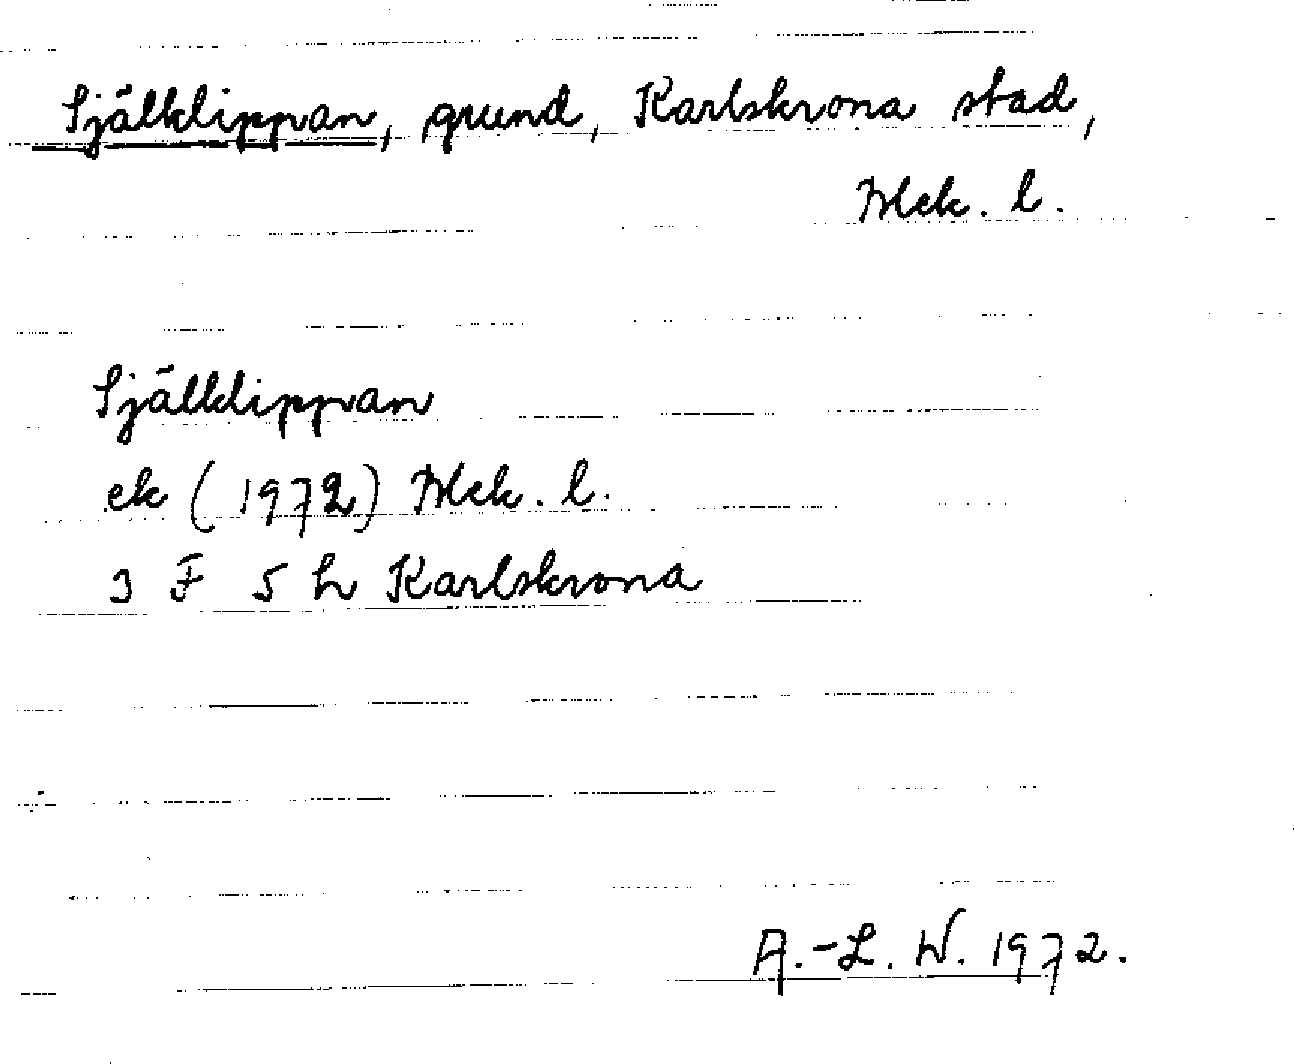 Själklippan, grund, Karlskrona stad,
Blek. l.
Själklippan
ek (1972) Blek. l.
3 F 5 h Karlskrona
A.-L. W. 1972.